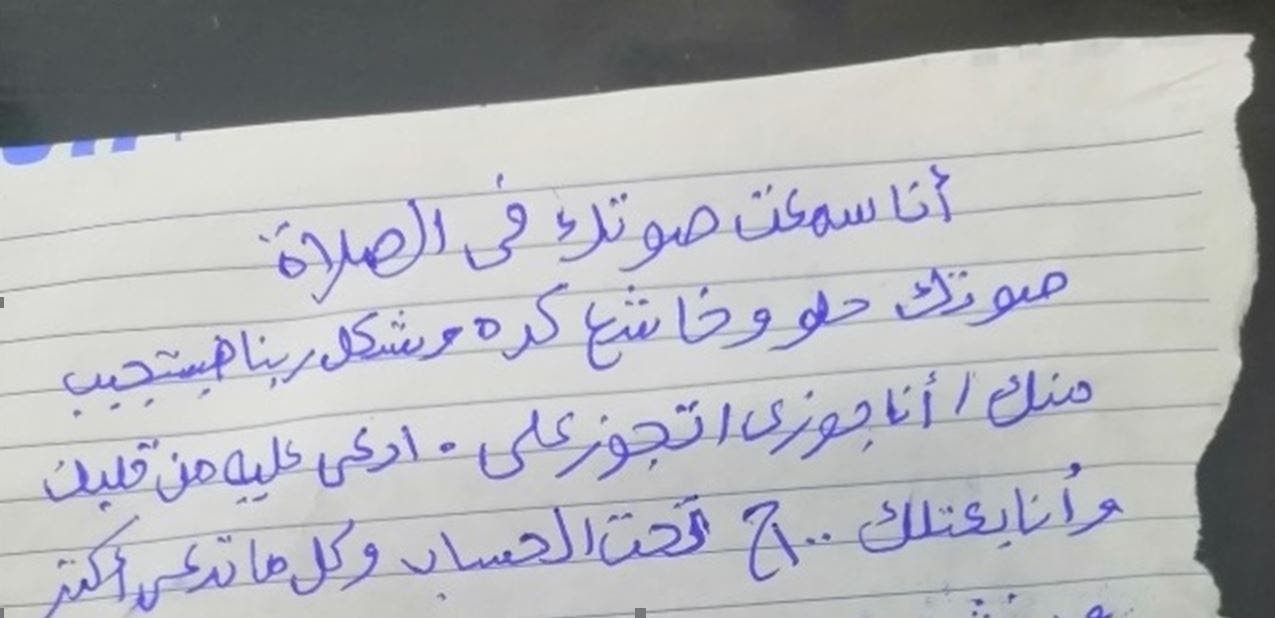 أنا سمعت صوتك في الصلاة
صوتك حلو وخاشع كده وشكل ربنا هيستجيب
منك / أنا جوزى اتجوز على . ادعى عليه من قلبك
وأنا بعتلك ..ج تحت الحساب وكل ما تدعى أكتر